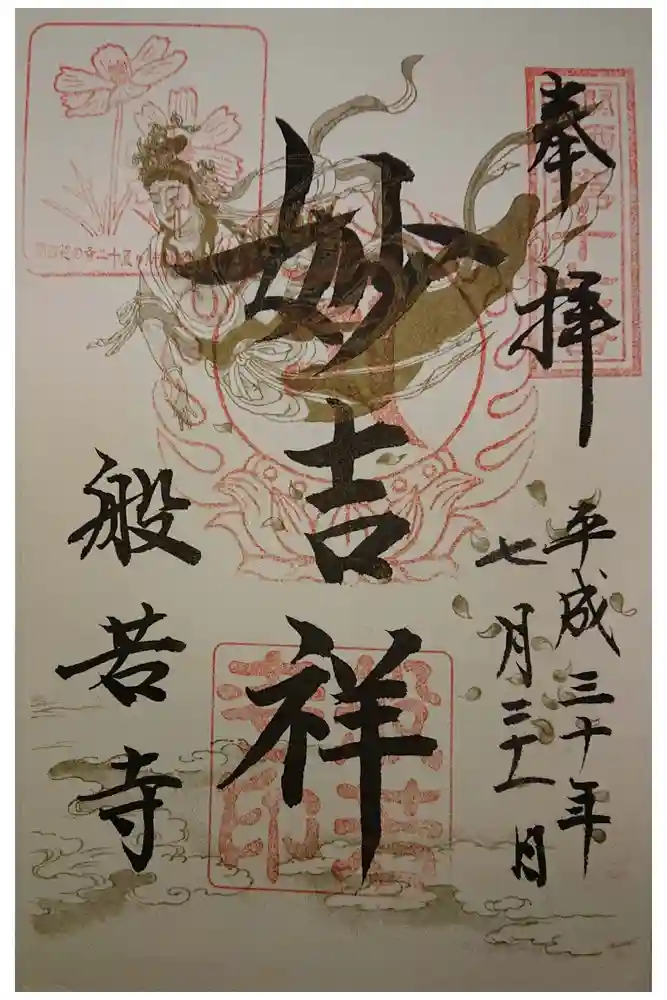 奉拝
平成三十年
七月三十一日
妙吉祥
般若寺
般若
寺印